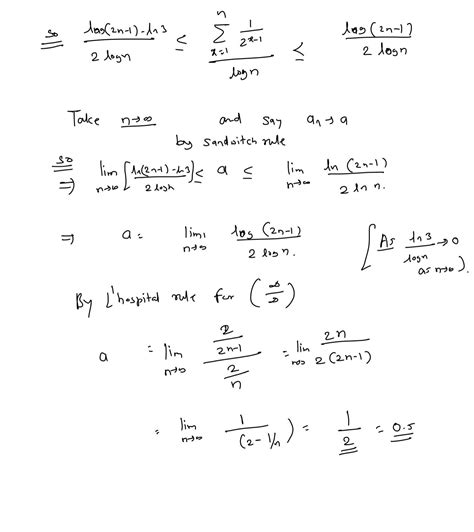 so (log(2n-1) - ln 3) / (2 log n) ≤ (∑_{x=1}^{n} 1/(2x-1)) / (log n) ≤ (log(2n-1)) / (2 log n)
Take n→∞ and say a_n → a
by sandwitch rule
so
⇒ lim_{n→∞} [(ln(2n-1) - ln 3) / (2 log n)] ≤ a ≤ lim_{n→∞} (ln(2n-1)) / (2 ln n).
⇒ a = lim_{n→∞} (log(2n-1)) / (2 log n). [As (ln 3)/(log n) → 0 as n→∞).
By L'hospital rule for (∞/∞)
a = lim_{n→∞} (2/(2n-1)) / (2/n) = lim_{n→∞} 2n / (2(2n-1))
= lim_{n→∞} 1 / (2 - 1/n) = 1/2 = 0.5